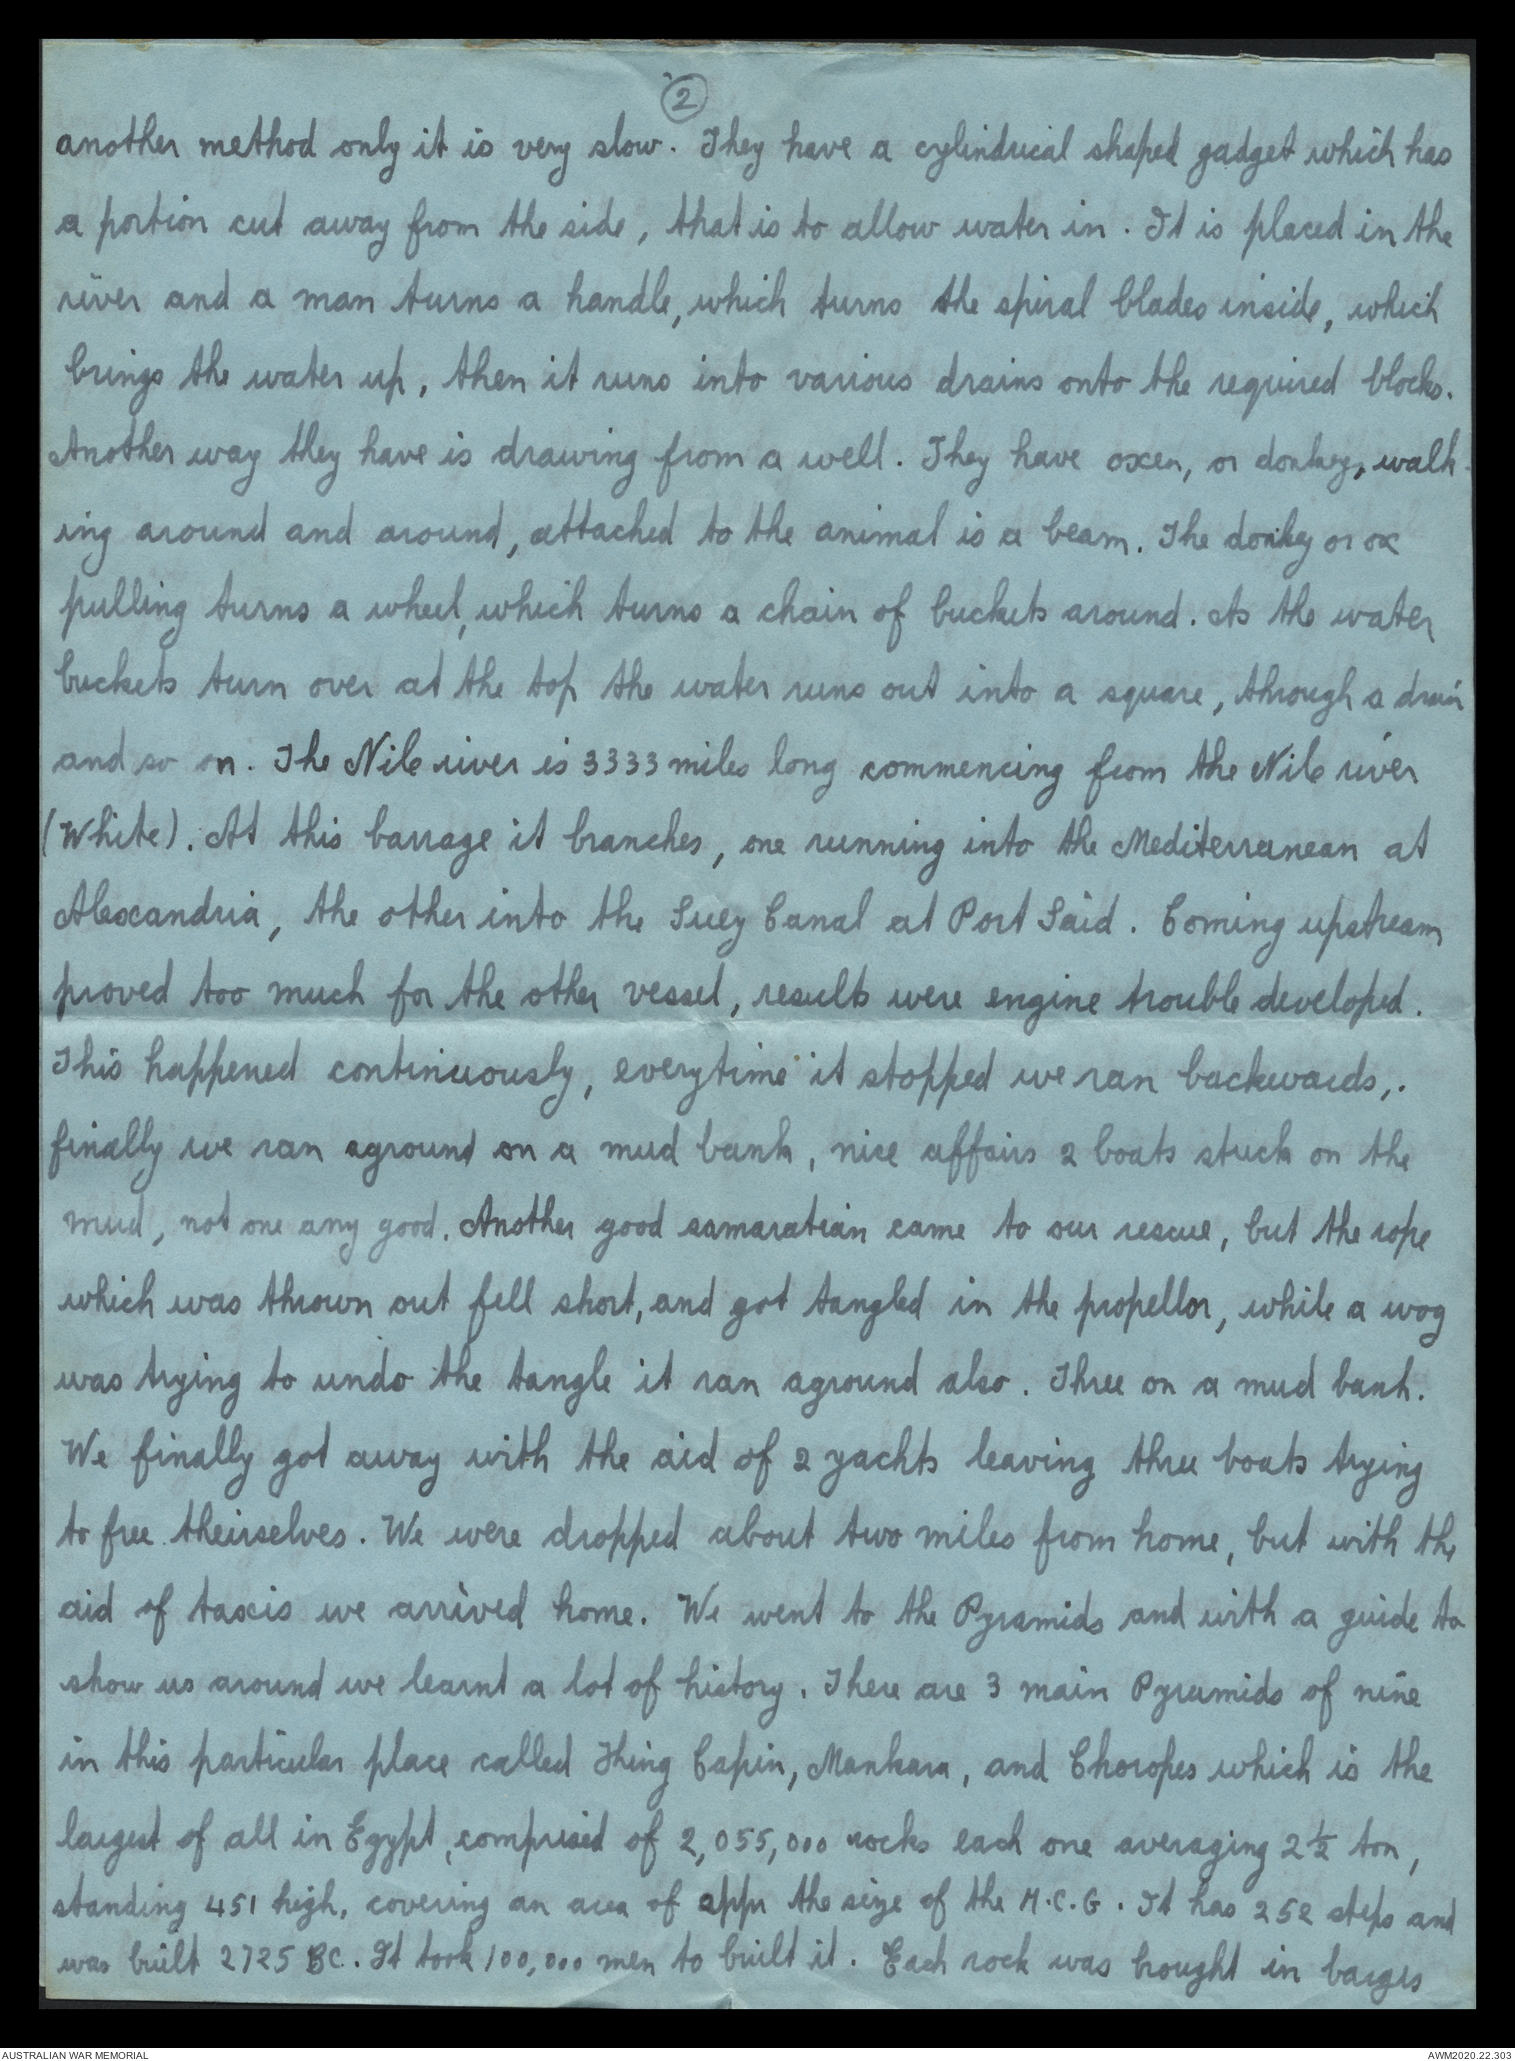 2
another method only it is very slow. They have a cylindrical shaped gadget which has
a portion cut away from the side, that is to allow water in. It is placed in the
river and a man turns a handle, which turns the spiral blades inside, which
brings the water up, then it runs into various drains onto the required blocks.
Another way they have is drawing from a well. They have oxen, or donkey, walk-
ing around and around, attached to the animal is a beam. The donkey or ox
pulling turns a wheel, which turns a chain of buckets around. As the water
buckets turn over at the top the water runs out into a square, through a drain
and so on. The Nile river is 3333 miles long commencing from the Nile river
(White). At this barrage it branches, one running into the Mediterranean at
Alexandria, the other into the Suez Canal at Port Said. Coming upstream
proved too much for the other vessel, results were engine trouble developed.
This happened continuously, everytime it stopped we ran backwards,.
finally we ran aground on a mud bank, nice affairs 2 boats stuck on the
mud, not one any good. Another good samaratian came to our rescue, but the rope
which was thrown out fell short, and got tangled in the propellor, while a wog
was trying to undo the tangle it ran aground also. Three on a mud bank.
We finally got away with the aid of 2 yachts leaving three boats trying
to free theirselves. We were dropped about two miles from home, but with the
aid of taxis we arrived home. We went to the Pyramids and with a guide to
show us around we learnt a lot of history. There are 3 main Pyramids of nine
in this particular place called Thing Capin, Mankara, and Choropes which is the
largest of all in Egypt, comprised of 2,055,000 rocks each one averaging 2½ ton,
standing 451 high, covering an area of appr the size of the M.C.G. It has 252 steps and
was built 2725 BC. It took 100,000 men to built it. Each rock was brought in barges
AUSTRALIAN WAR MEMORIAL
AWM2020.22.303